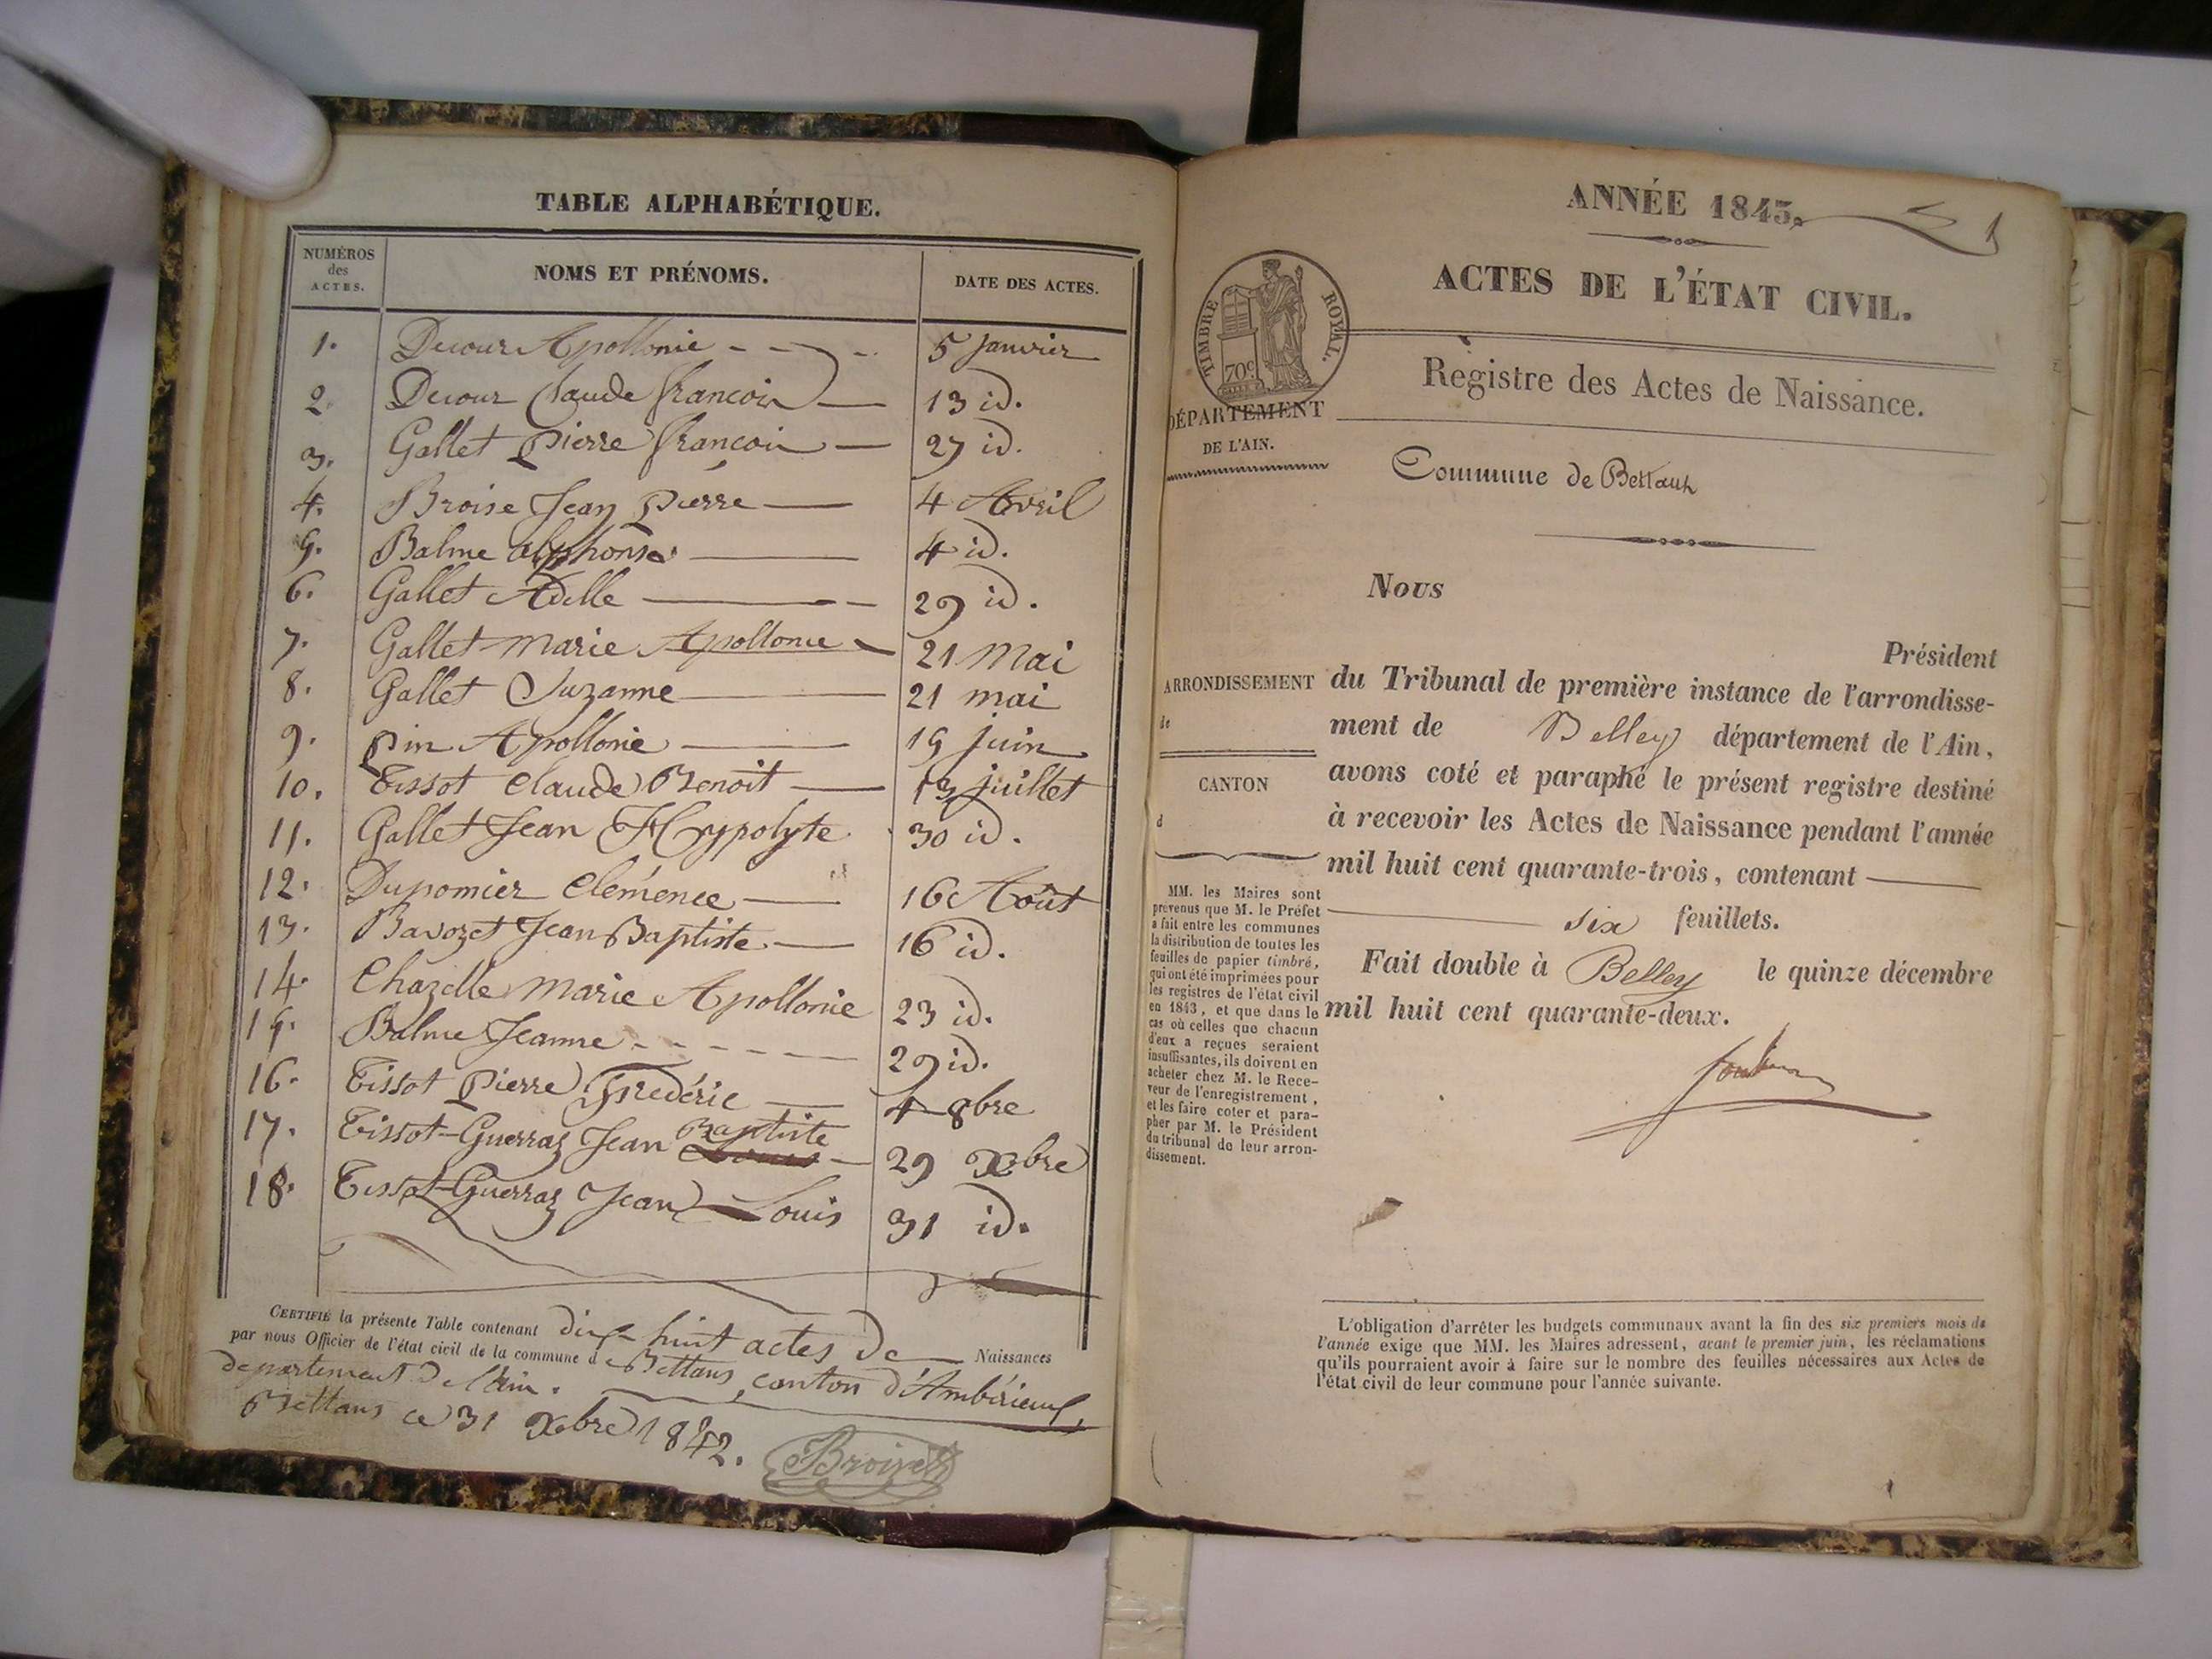 TABLE ALPHABÉTIQUE.
NUMÉROS des ACTES.
NOMS ET PRÉNOMS.
DATE DES ACTES.
1. Decour Apollonie 5 Janvier
2. Decour Claude françois 13 id.
3. Gallet Pierre françois 27 id.
4. Broise Jean Pierre 4 Avril
5. Balme alphonse 4 id.
6. Gallet Adelle 29 id.
7. Gallet Marie Apollonie 21 Mai
8. Gallet Suzanne 21 mai
9. Pin Apollonie 15 juin
10. Tissot Claude Benoit 13 juillet
11. Gallet Jean Hyppolyte 30 id.
12. Dupomier Clémence 16 Août
13. Bavozet Jean Baptiste 16 id.
14. Chazelle Marie Apollonie 23 id.
15. Balme Jeanne 29 id.
16. Tissot Pierre Fredéric 4 8bre
17. Tissot-Guerraz Jean Baptiste 29 Xbre
18. Tissot-Guerraz Jean Louis 31 id.
CERTIFIÉ la présente Table contenant dix-huit actes de Naissances
par nous Officier de l'état civil de la commune de Bettans, canton d'Ambérieux,
departement de l'Ain.
Bettans ce 31 Xbre 1842.
Broise
ANNÉE 1843.
1
ACTES DE L'ÉTAT CIVIL.
TIMBRE ROYAL.
70c
Registre des Actes de Naissance.
DÉPARTEMENT
DE L'AIN.
Commune de Bettans
Nous
Président
ARRONDISSEMENT
de
CANTON
d
du Tribunal de première instance de l'arrondisse-
ment de Belley département de l'Ain,
avons coté et paraphé le présent registre destiné
à recevoir les Actes de Naissance pendant l'année
mil huit cent quarante-trois, contenant
six feuillets.
Fait double à Belley le quinze décembre
mil huit cent quarante-deux.
MM. les Maires sont
prévenus que M. le Préfet
a fait entre les communes
la distribution de toutes les
feuilles de papier timbré,
qui ont été imprimées pour
les registres de l'état civil
en 1843, et que dans le
cas où celles que chacun
d'eux a reçues seraient
insuffisantes, ils doivent en
acheter chez M. le Rece-
veur de l'enregistrement,
et les faire coter et para-
pher par M. le Président
du tribunal de leur arron-
dissement.
L'obligation d'arrêter les budgets communaux avant la fin des six premiers mois de
l'année exige que MM. les Maires adressent, avant le premier juin, les réclamations
qu'ils pourraient avoir à faire sur le nombre des feuilles nécessaires aux Actes de
l'état civil de leur commune pour l'année suivante.